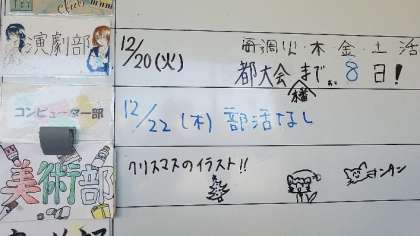 演劇部
12/20(火)
毎週火・木・金・土 活
都大会まで、8日!
コンピューター部
12/22(木) 部活なし
美術部
クリスマスのイラスト!!